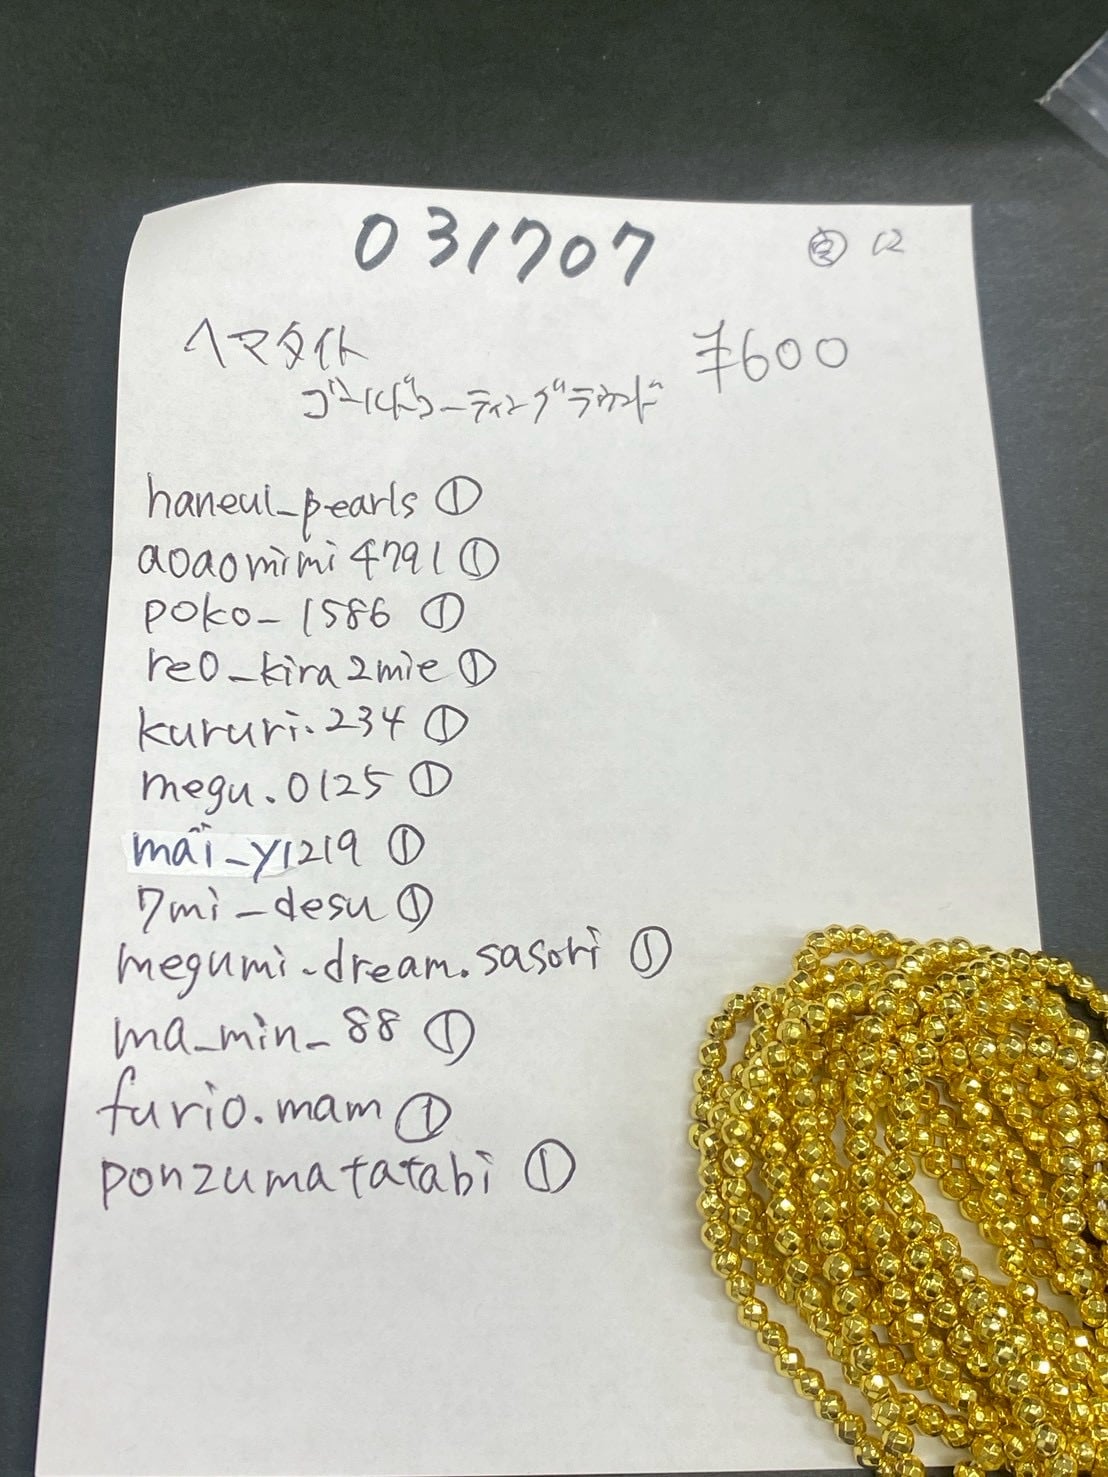 031707
12
ヘマタイト
¥600
ゴールドコーティングラウンド
haneul_pearls ①
aoaomimi4791 ①
poko_1586 ①
reo_kira2mie ①
kururi.234 ①
megu.0125 ①
mai_y1219 ①
7mi_desu ①
megumi.dream.sasori ①
ma_min_88 ①
furio.mam ①
ponzumatatabi ①